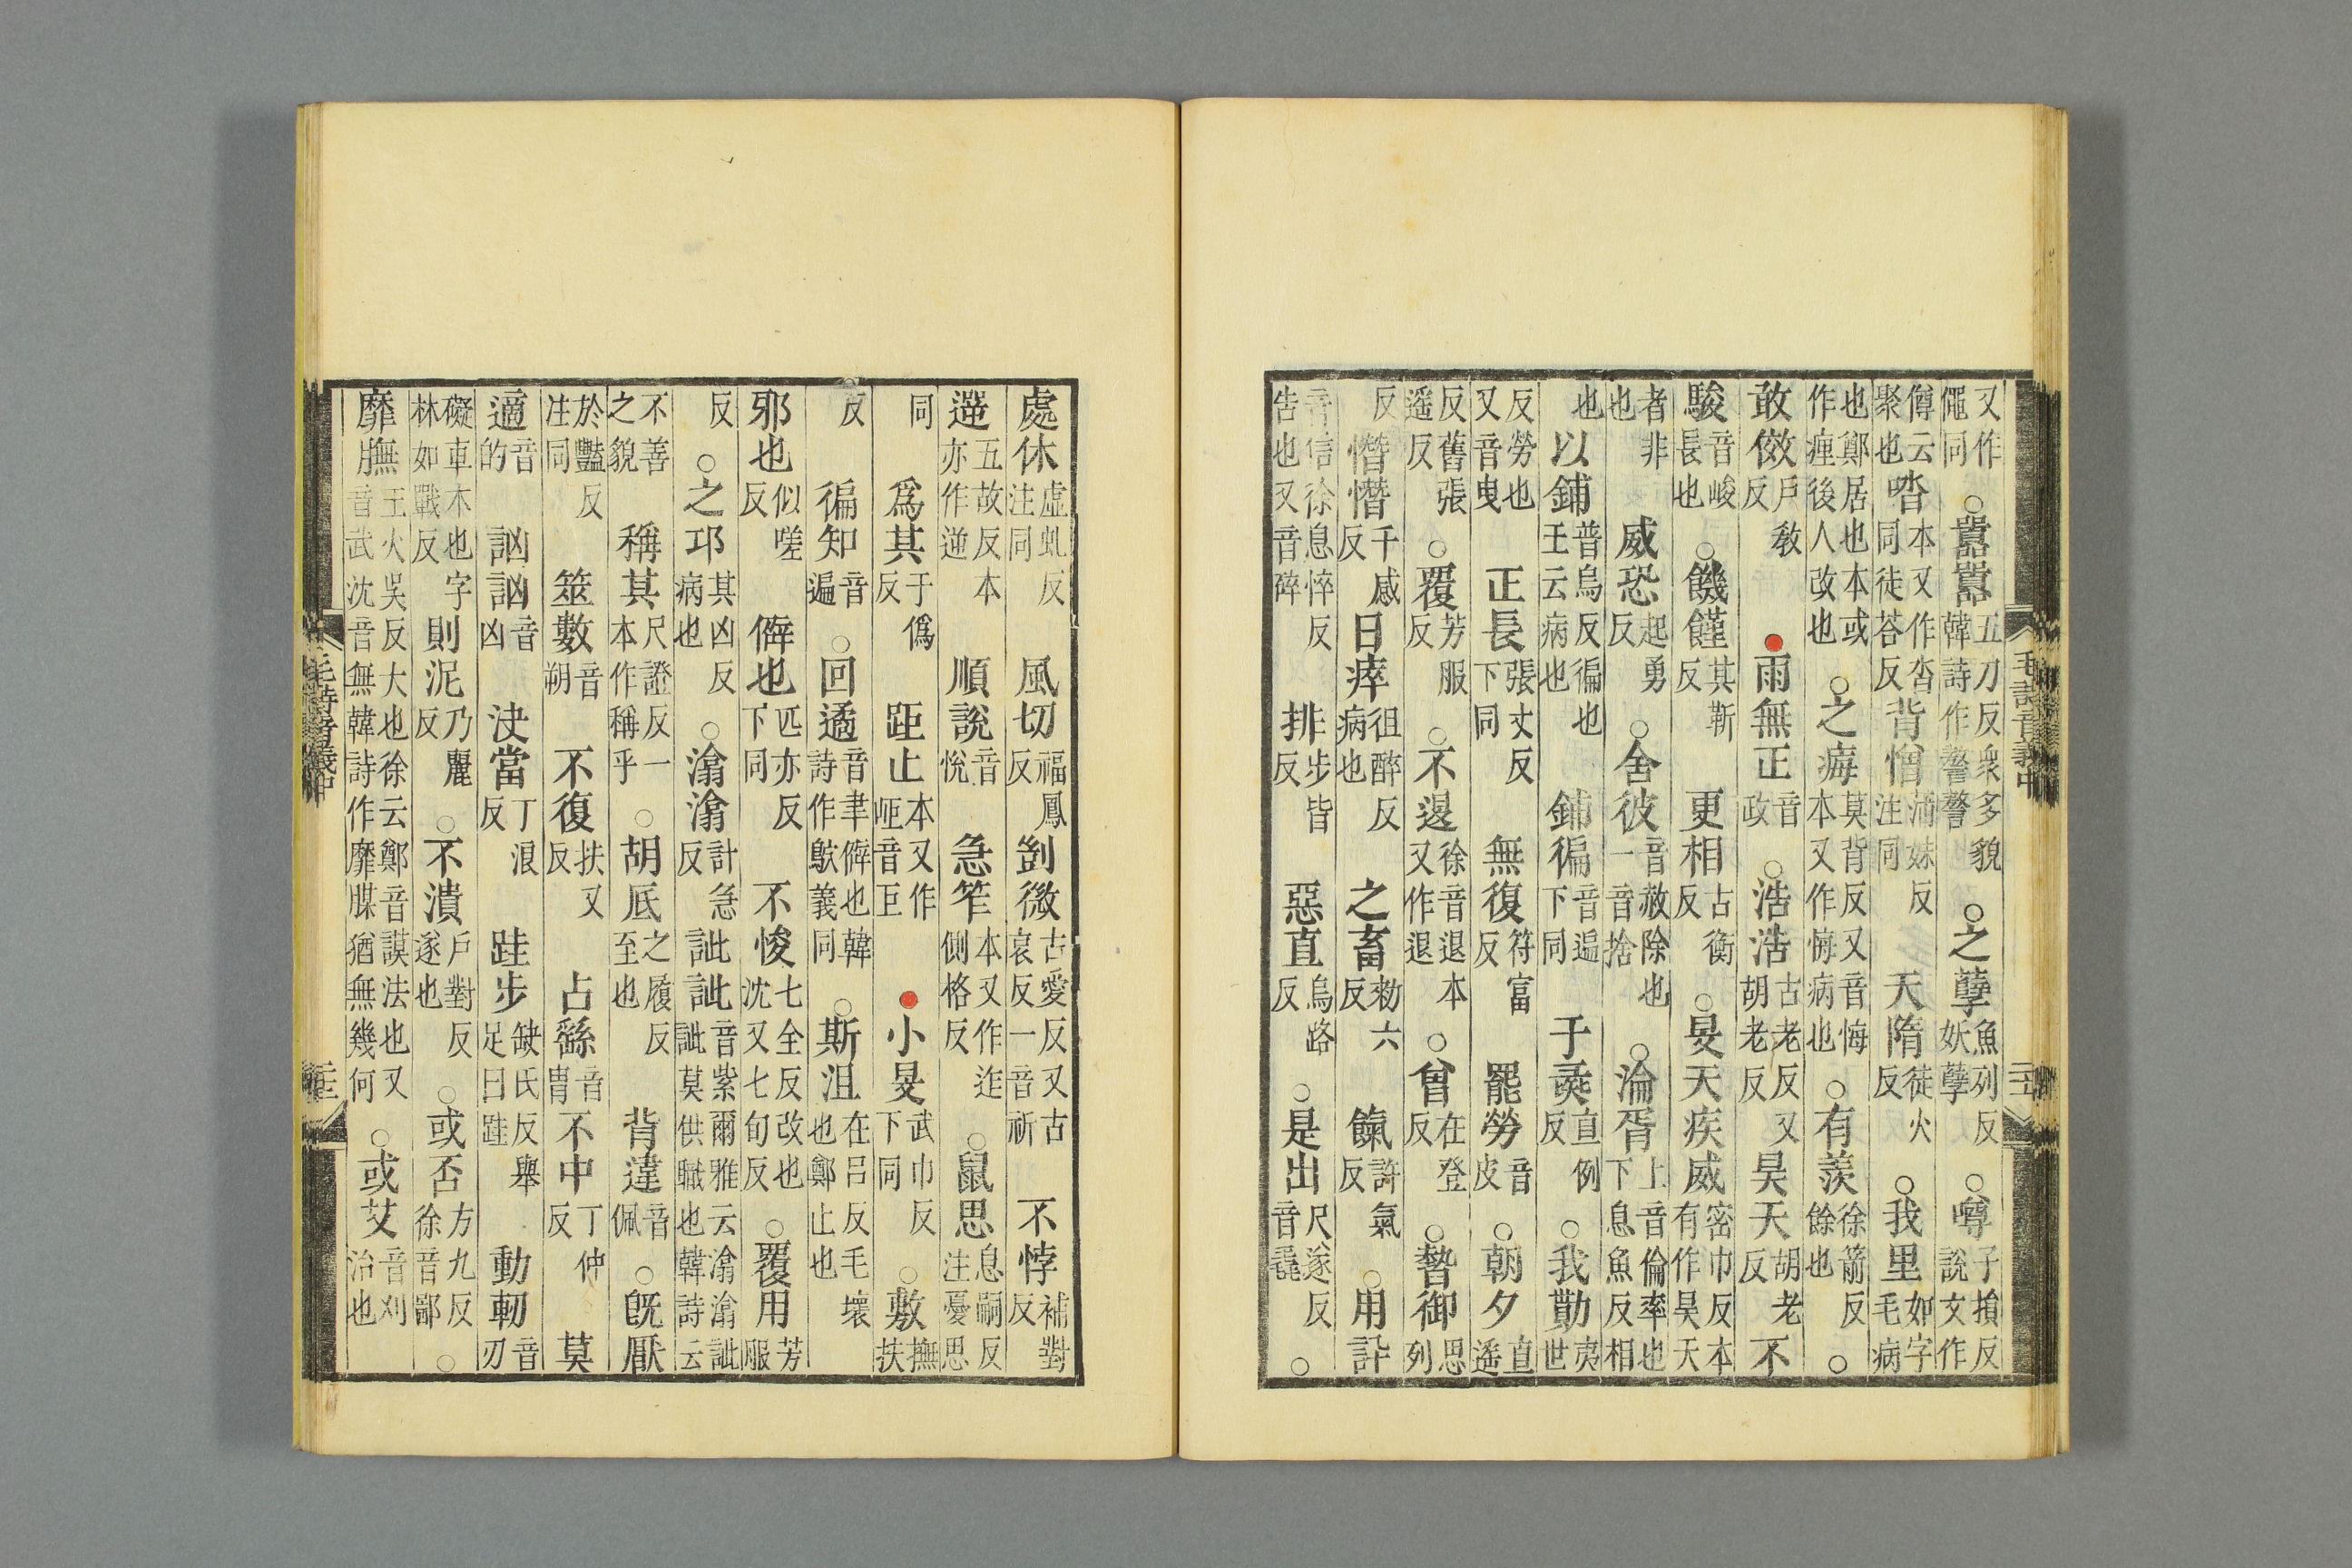 又作僶同○嚻嚻五刀反衆多貌韓詩作謷謷○之孽魚列反妖孽○噂子損反說文作
僔云聚也本又作沓同徒荅反背憎蒲妹反注同天隋徒火反○我里如字毛病
也鄭居也本或作㾖後人改也○之痗莫背反又音悔本又作侮病也○有羨徐箭反餘也○
敢傚戶敎反●雨無正音政○浩浩古老反又胡老反昊天胡老反不
駿音峻長也○饑饉其靳反更相古衡反○旻天疾威密巾反本有作昊天
者非也威恐起勇反○舍彼音赦除也一音捨○淪胥上音倫率也下息魚反相
也以鋪普烏反徧也王云病也鋪徧音遍下同于彘直例反○我勩夷世
反勞也又音曳正長張丈反下同無復符富反罷勞音皮○朝夕直遥
反舊張遥反○覆芳服反○不𨓆徐音退本又作退○曾在登反○暬御思列
反憯憯千慼反日瘁徂醉反病也之畜勑六反餼許氣反○用訐
音信徐息悴反告也又音碎排非步皆反惡直烏路反○是出尺遂反音毳○
毛詩音義中
處休虛虬反注同風切福鳳反剴微古愛反又古哀反一音祈不悖補對反
遻五故反本亦作逆順說音悅急笮本又作迮側格反○鼠思息嗣反注憂思
同爲其于僞反距止本又作岠音巨●小旻武巾反下同○敷撫扶
反徧知音遍○回遹音聿僻也韓詩作鴥義同○斯沮在呂反毛壞也鄭止也
邪也似嗟反僻也匹亦反下同不悛七全反改也沈又七旬反○覆用芳服
反○之邛其凶反病也○潝潝許急反訿訿音紫爾雅云潝潝訿訿莫供職也韓詩云
不善之貌稱其尺證反一本作稱乎○胡厎之履反至也背違音佩○旣厭
於豔反注同筮數音朔不復扶又反占繇音冑不中丁仲反莫
適音的訩訩音凶決當丁浪反跬步缺氏反舉足曰跬動軔音刃
礙車木也字林如戰反則泥乃麗反○不潰戶對反遂也○或否方九反徐音鄙○
靡膴王火吳反大也徐云鄭音謨法也又音武沈音無韓詩作靡腜猶無幾何○或艾音刈治也
毛詩音義中